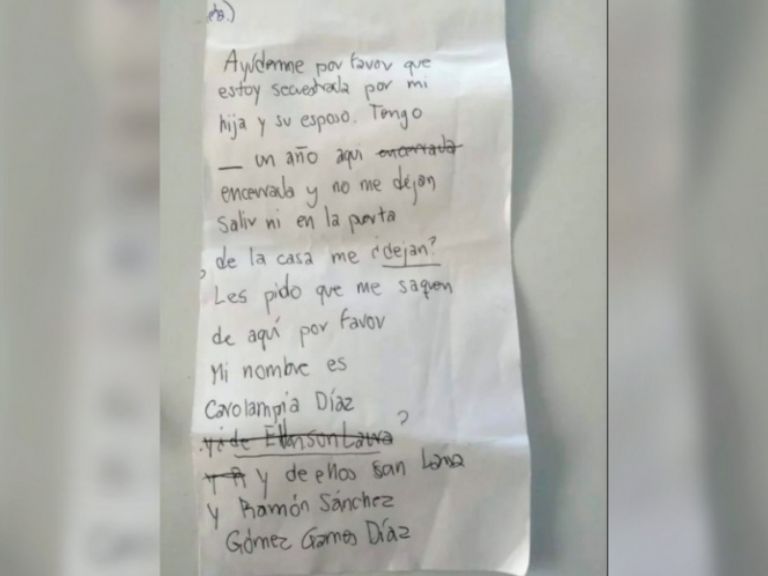 Ayúdenme por favor que
estoy secuestrada por mi
hija y su esposo. Tengo
_ un año aqui encerrada
encerrada y no me dejan
Salir ni en la puerta
de la casa me ¿dejan?
Les pido que me saquen
de aquí por favor
Mi nombre es
Carolampia Díaz
?
y de ellos son Laura
y Ramón Sánchez
Gómez Gomes Díaz